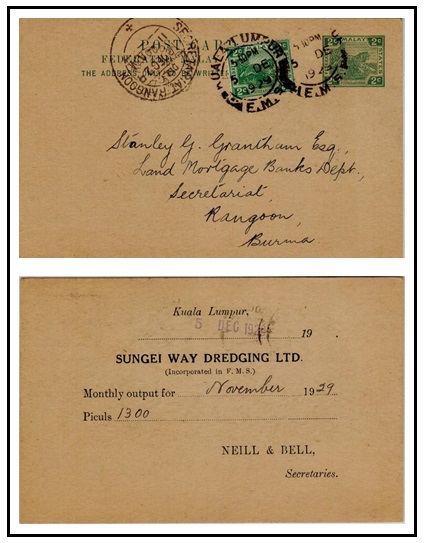 POST CARD
FEDERATED MALAY
THE ADDRESS
KUALA LUMPUR
DE
F.M.S.
2c 2c
SECRETARIAT, RANGOON
Stanley G. Grantham Esq.,
Land Mortgage Banks Dept,
Secretariat,
Rangoon,
Burma.
Kuala Lumpur,
5 DEC 192
19 .
SUNGEI WAY DREDGING LTD.
(Incorporated in F. M. S.)
Monthly output for November 1929.
Piculs 1300
NEILL & BELL,
Secretaries.